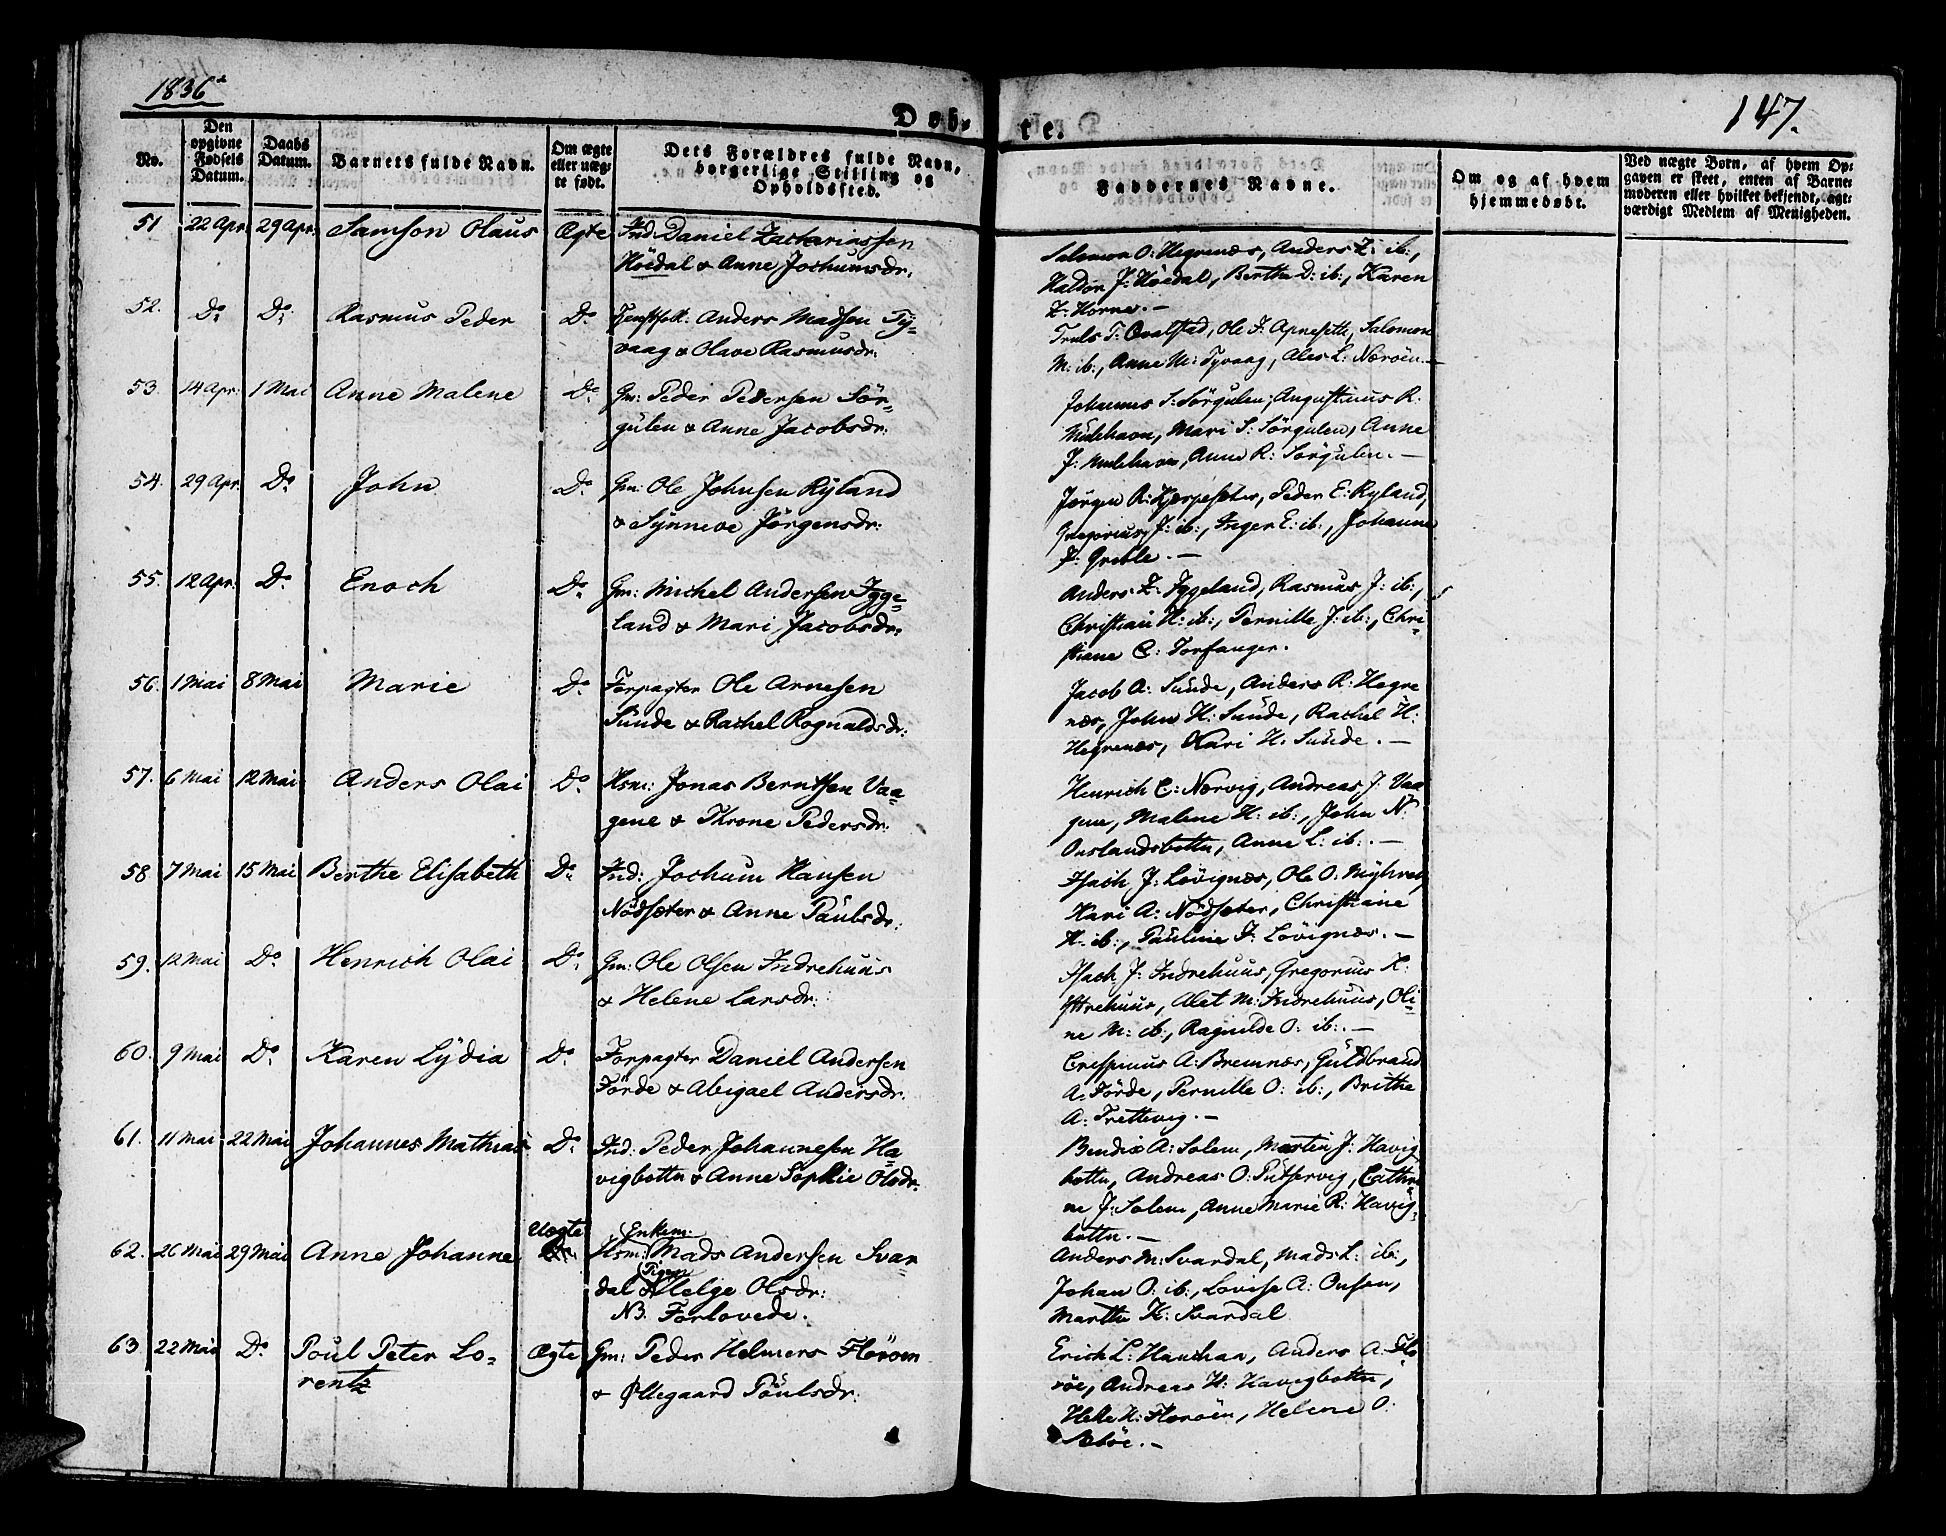 1836
147.
Døb-
te.
No.
Den
opgivne
Fødsels
Datum.
Daabs
Datum.
Barnets fulde Navn.
Om ægte
eller uæg-
te født.
Dets Forældres fulde Navn,
borgerlige Stilling og
Opholdssted.
Faddernes Navne.
Om og af hvem
hjemmedøbt.
Ved uægte Børn, af hvem Op-
gaven er skeet, enten af Barne-
moderen eller hvilket bekjendt, agt-
værdigt Medlem af Menigheden.
51 22 Apr 29 Apr. Samson Olaus Ægte Ind: Daniel Zachariassen
Höidal & Anne Jochumsdr:
Salomon O: Hegrenæs, Anders Z: ib:,
Haldor J: Höidal, Berthe D: ib:, Karen
Z: Horne. —
52. Do Do Rasmus Peder Do Anders Madsen Ty-
vaag & Olave Rasmusdr:
Truls T: Qvalstad, Ole J. Apneseth, Salomon
M: ib:, Anne M: Tyvaag, Ales L: Næröen. —
53. 14 Apr. 1 Mai Anne Malene Do Gm: Peder Pedersen Sör-
gulen & Anne Jacobsdr:
Johannes S: Sörgulen, Augustinus R.
Mulehavn, Mari S: Sörgulen, Anne
J: Mulehavn, Anne R: Sörgulen. —
54. 29 Apr. Do John Do Gm: Ole Johnsen Ryland
& Synneve Jörgensdr:
Jörgen R: Kjerpeseter, Peder E: Ryland,
Gregorius J: ib:, Inger E: ib:, Johanne
J: Greble. —
55. 12 Apr. Do Enoch Do Gm: Michel Andersen Igge-
land & Mari Jacobsdr:
Anders Z: Iggeland, Rasmus J: ib:,
Christian H: ib:, Pernille J: ib:, Chri-
stiane C: Torfanger.
56. 1 Mai 8 Mai Marie Do Forpagter Ole Arnesen
Sunde & Rachel Rognaldsdr:
Jacob A: Sunde, Anders R: Hegre
næs, John H: Sunde, Rachel H:
Hegrenæs, Kari H: Sunde. —
57. 6 Mai 12 Mai Anders Olai Do Hsm: Jonas Berntsen Vaa-
gene & Throne Pedersdr:
Henrich C: Nærvig, Andreas J: Vaa
gene, Malene H: ib:, John N:
Anne L: ib: —
58 7 Mai 15 Mai Berthe Elisabeth Do Ind: Jochum Hansen
Nödseter & Anne Paulsdr:
Isach J: Lövignæs, Ole O:
Kari A: Nödseter, Christiane
H: ib:, Pauline J: Lövignæs. —
59. 12 Mai Do Henrich Olai Do Gm: Ole Olsen Indrehuus
& Helene Larsdr:
Isach J: Indrehuus, Gregorius H:
Ittrehuus, Alet M: Indrehuus, Oli-
ne M: ib:, Ragnilde O: ib: —
60. 9 Mai Do Karen Lydia Do Forpagter Daniel Andersen
Förde & Abigael Andersdr:
Crispinus A: Bremnæs, Guldbrand
A: Förde, Pernille O: ib:, Brithe
A: Trettevig. —
61. 11 Mai 22 Mai Johannes Mathias Do Ind: Peder Johannesen Ha-
vigbotten & Anne Sophie Olsdr:
Bendix A: Solem, Martin J: Havig
botten, Andreas O: Cathri
ne J: Solem, Anne Marie R: Havig-
botten. —
62. 26 Mai 29 Mai Anne Johanne Uægte Enkem: Mads Andersen Svar-
dal & Pigen Helge Olsdr:
NB. Forlovede.
Anders M: Svardal, Mads L: ib:,
Johan O: ib:, Lovise A: Ousen,
Marthe H: Svardal
63. 22 Mai Do Poul Peter Lo-
rentz
Ægte Gm: Peder Helmers Floröen
& Ollegaard Poulsdr:
Erich L: Hauchan, Anders A: Flo-
röe, Andreas H: Havigbotten,
H: Floröen, Helene O: